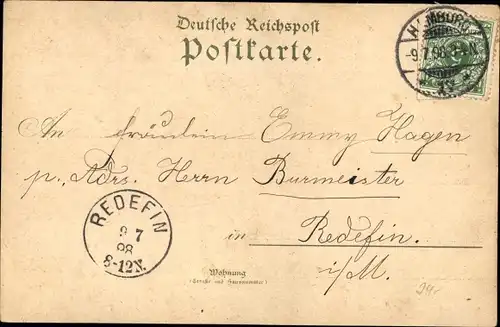 Deutsche Reichspost
Postkarte.
HAMBURG
-9.7.98.
An Fräulein Emmy Hagen
p. Adrs. Herrn Burmeister
in Redefin.
i/M.
REDEFIN
9 7
98
8-12N.
Wohnung
(Straße und Hausnummer)